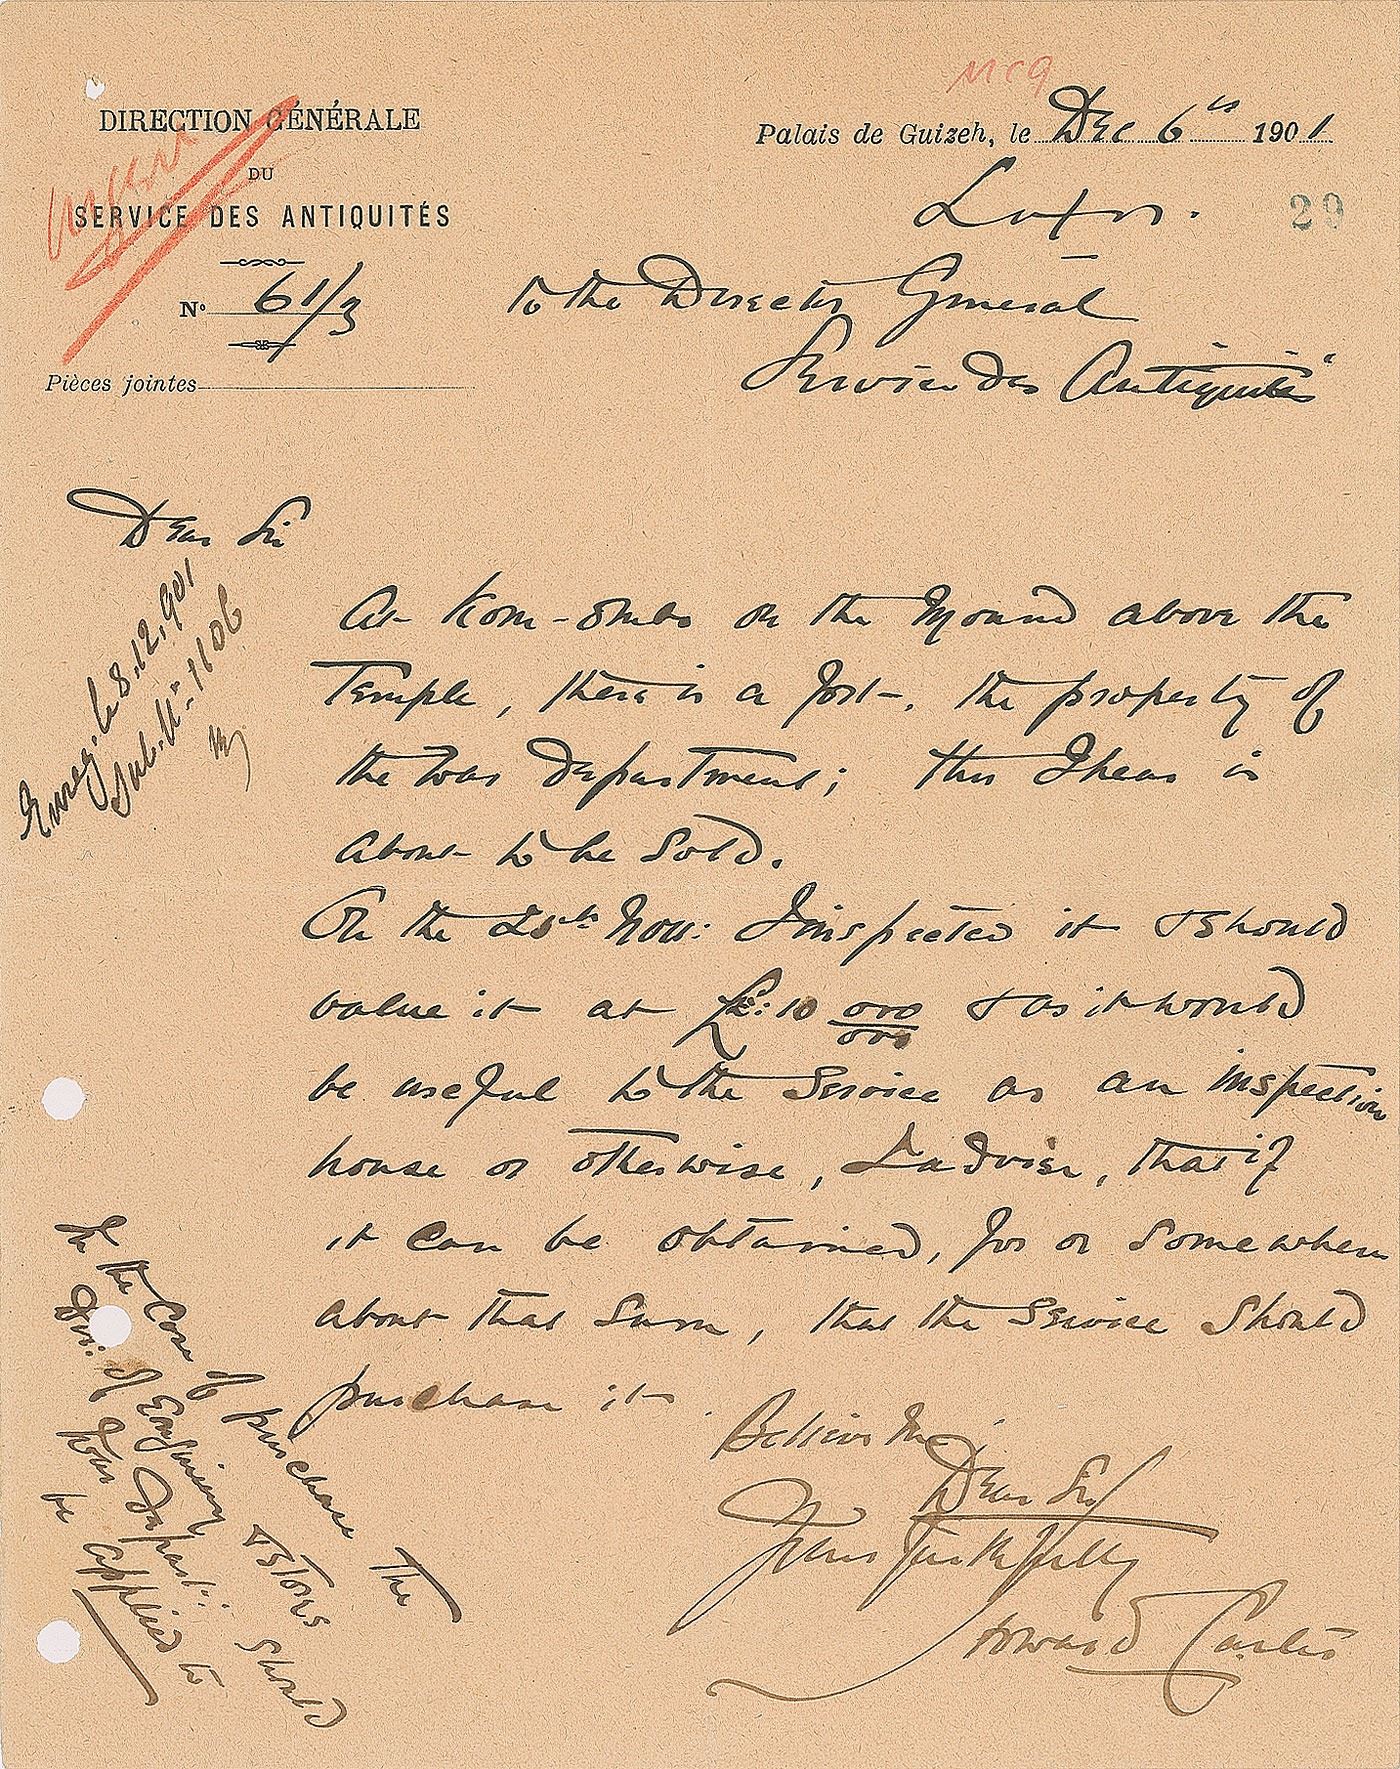 MC9
DIRECTION GÉNÉRALE
DU
SERVICE DES ANTIQUITÉS
Urgent
N° 61/3
Pièces jointes
Palais de Guizeh, le Dec 6th 1901
Luxor.
29
To the Director General
Service des Antiquités
Dear Sir
Enreg. le 8.12.901
Sub. No 1106
At Kom-Ombo on the Mound above the
Temple, there is a fort, the property of
the War Department; this I hear is
about to be Sold.
On the Nov: I inspected it & should
value it at £E: 10 000/000 & as it would
be useful to the Service as an inspection
house or otherwise, I advise, that if
it can be obtained, for or somewhere
about that Sum, that the Service Should
purchase it.
Believe Me
Dear Sir
Yours faithfully
Howard Carter
In the Case of purchase the
Dir: of Engineering & Stores Should
War Depart:
be applied to